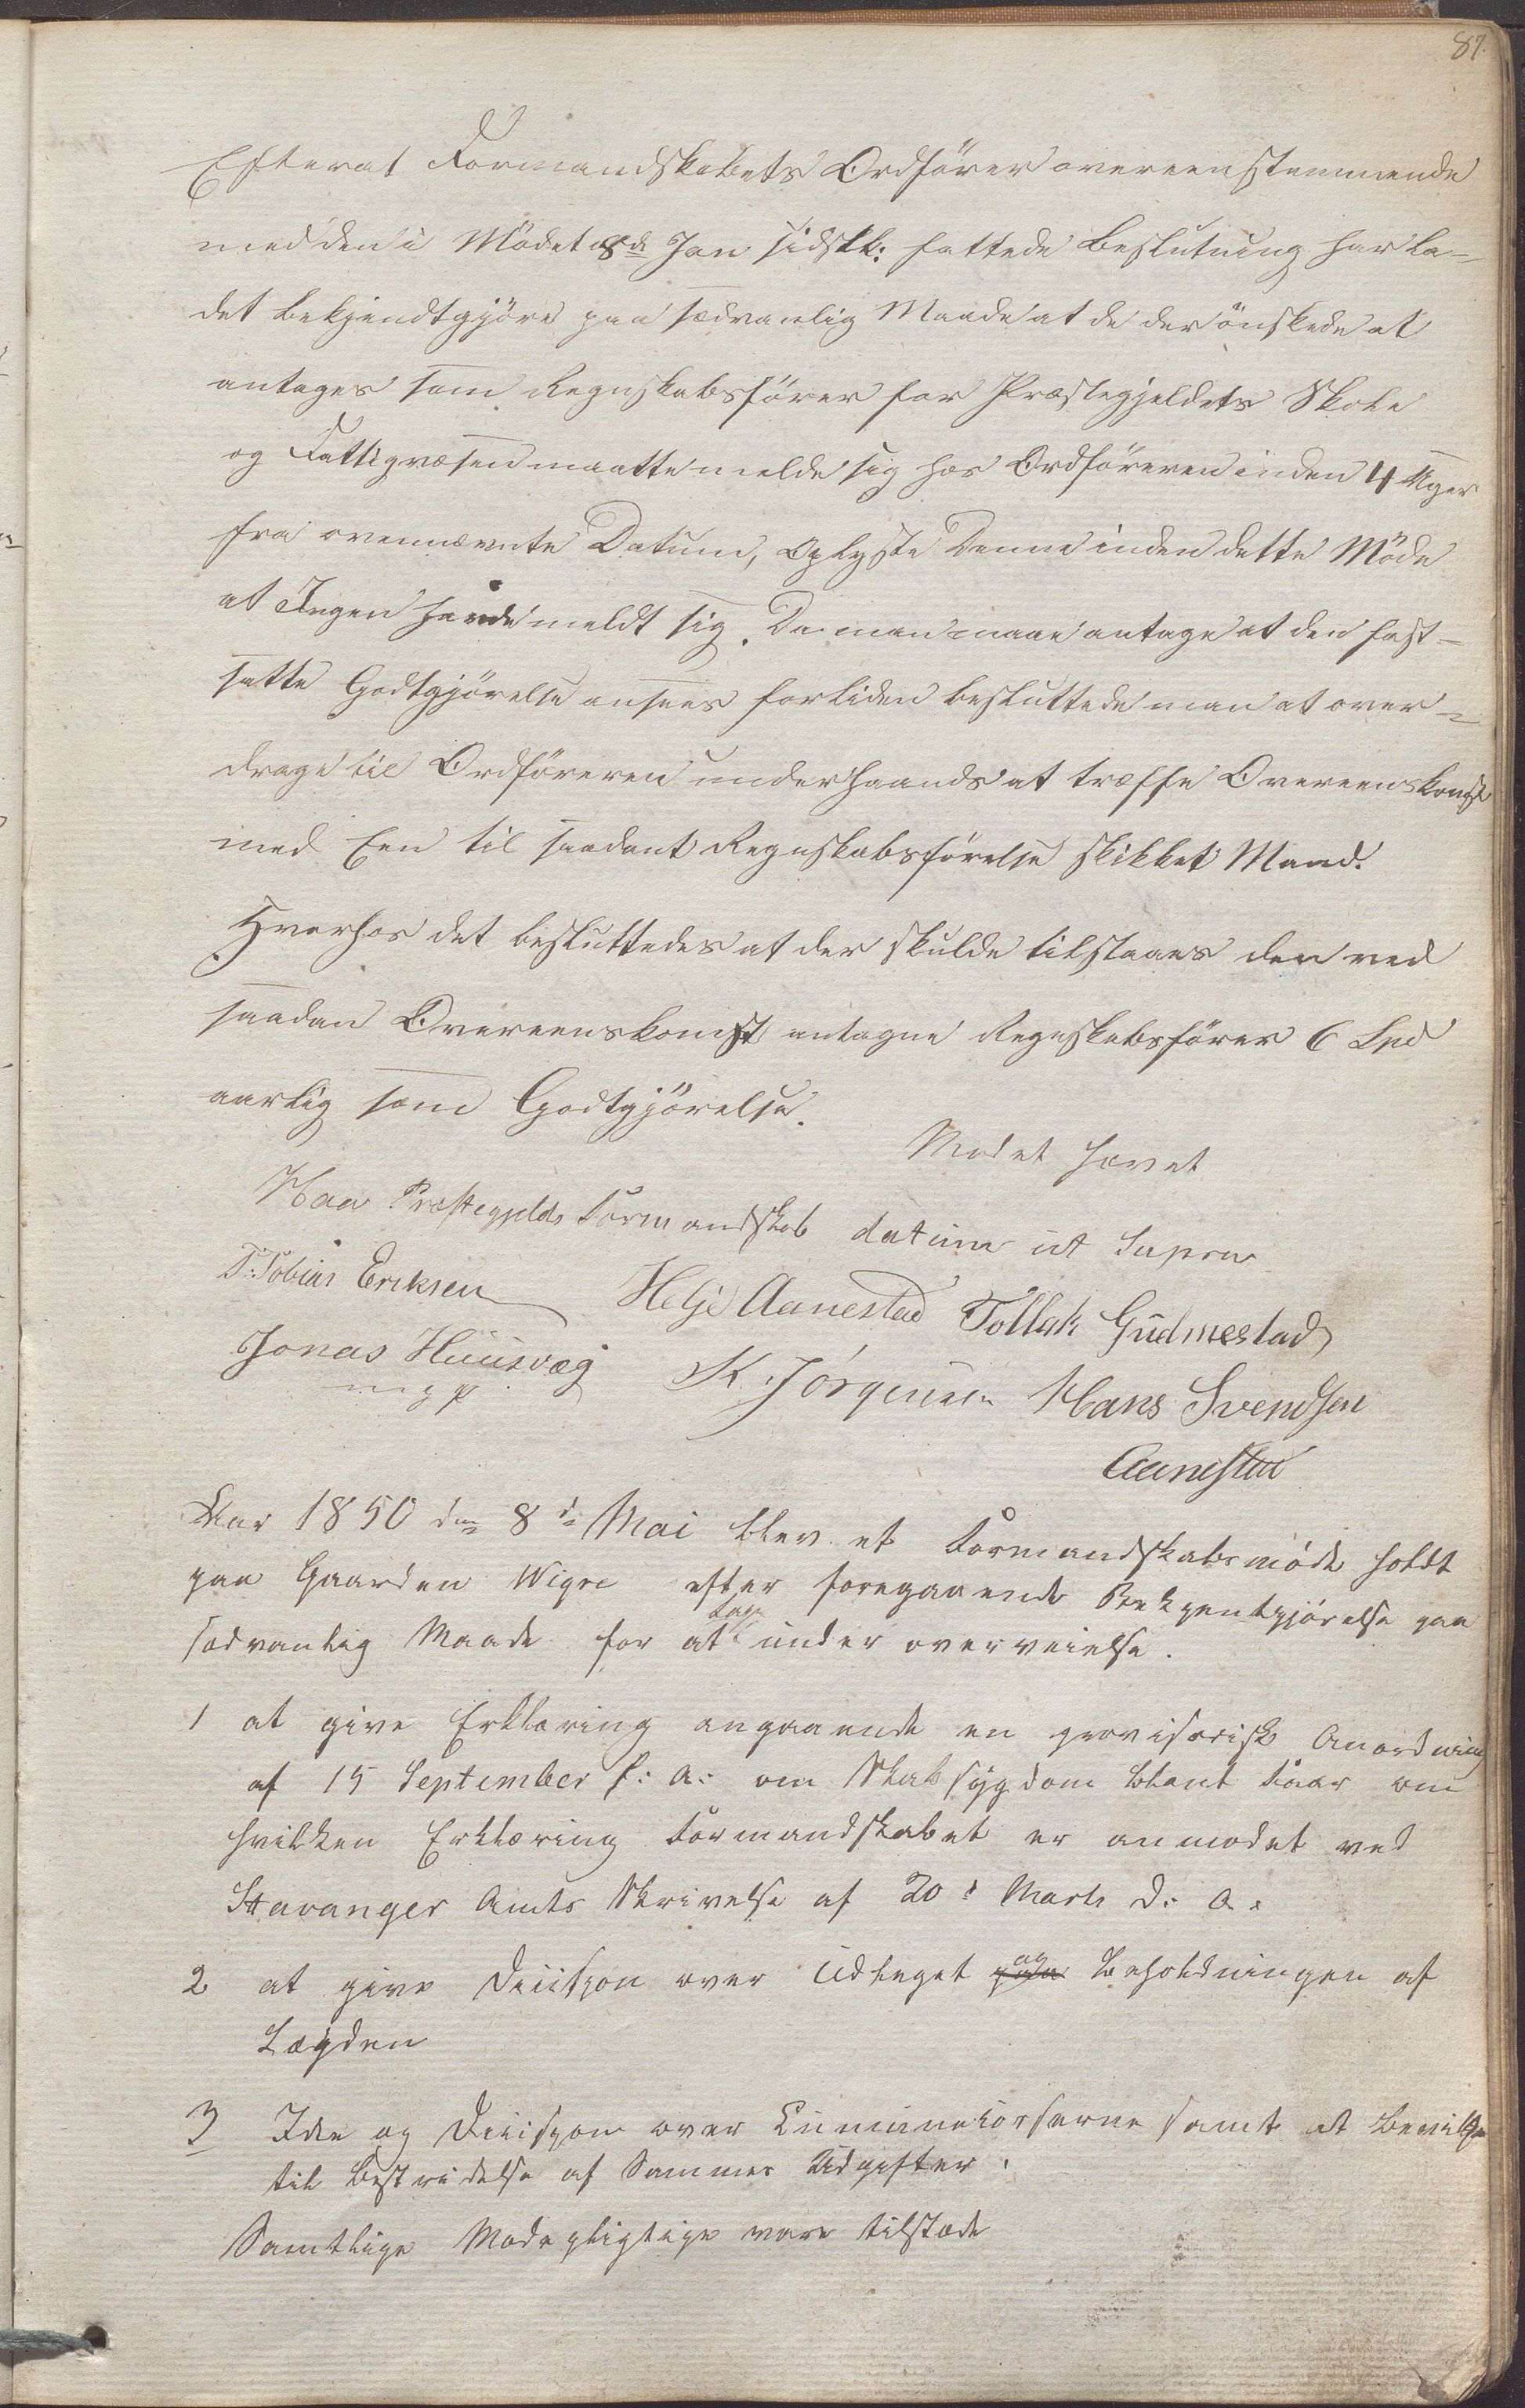 87.
Efterat Formandskabets Ordförer overeenstemmende
med den i Mödet 8de Jan sidstl: fattede Beslutning har la-
det bekjendtgjöre paa sædvanlig Maade at de der önskede at
antages som Regnskabsförer for Præstegjeldets Skole
og Fattigvæsen maatte melde sig hos Ordföreren inden 4 Uger
fra ovennævnte Datum, oplyste Denne inden dette Möde
at Ingen havde meldt sig. Da man maae antage at den fast-
satte Godtgjörelse ansees for liden besluttede man at over-
drage til Ordföreren underhaands at træffe Overeenskomst
med Een til saadant Regnskabsförelse skikket Mand.
Hvorhos det besluttedes at der skulde tilstaaes den ved
saadan Overeenskomst antagne Regnskabsförer 6 Spd
aarlig som Godtgjörelse.
Mødet hævet
Haa Præstegjelds Formandskab datum ut Supra
T. Tobias Eriksen Helje Aanestad Tollak Gudmestad
Jonas Huusvæg K. Jörgensen Hans Svendsen
mpp Aanestad
Aar 1850 den 8de Mai blev et Formandskabsmöde holdt
paa Gaarden Wigre efter foregaaende Bekjentgjörelse paa
sædvanlig Maade for at tage under overveielse.
1 at give Erklæring angaaende en provisorisk Anordning
af 15 September f: a: om Skabsygdom blant Faar om
hvilken Erklæring Formandskabet er anmodet ved
Stavanger Amts Skrivelse af 20de Marts d: a:
2 at give Desisjon over Udleget og Beholdningen af
Lægden
3 og Desisjon over samt at bevilge
til bestridelse af Sammes Udgifter.
Samtlige Mødepligtige vare tilstæde